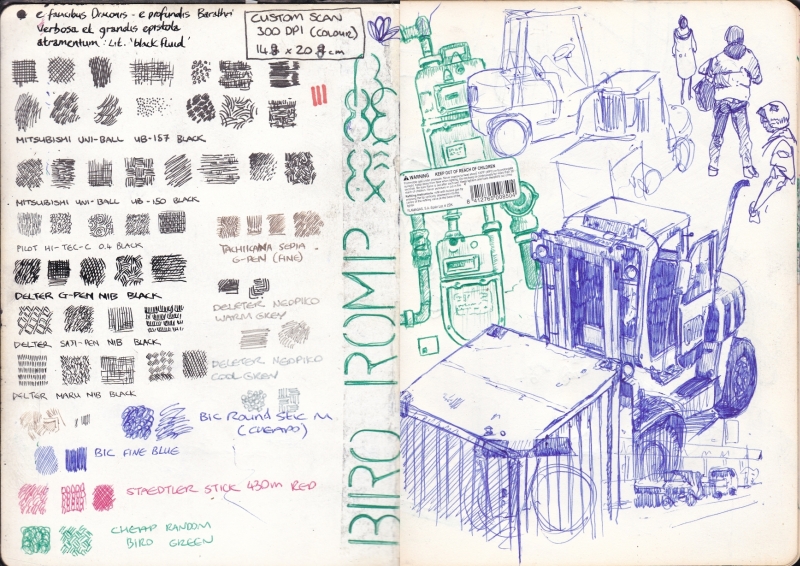 e faucibus Draconis - e profundis Barathri
verbosa et grandis epistola
atramentum: Lit. 'black fluid'
CUSTOM SCAN
300 DPI (COLOUR)
MITSUBISHI UNI-BALL UB-157 BLACK
MITSUBISHI UNI-BALL UB-150 BLACK
PILOT HI-TEC-C 0.4 BLACK
TACHIKAWA SEPIA
G-PEN (FINE)
DELTER G-PEN NIB BLACK
DELETER NEOPIKO
WARM GREY
DELTER SAJI-PEN NIB BLACK
DELETER NEOPIKO
COOL GREY
DELTER MARU NIB BLACK
BIC ROUND STIC M
(CHEAPO)
BIC FINE BLUE
STAEDTLER STICK 430M RED
CHEAP RANDOM
BIRO GREEN
BIRO ROMP
WARNING KEEP OUT OF REACH OF CHILDREN